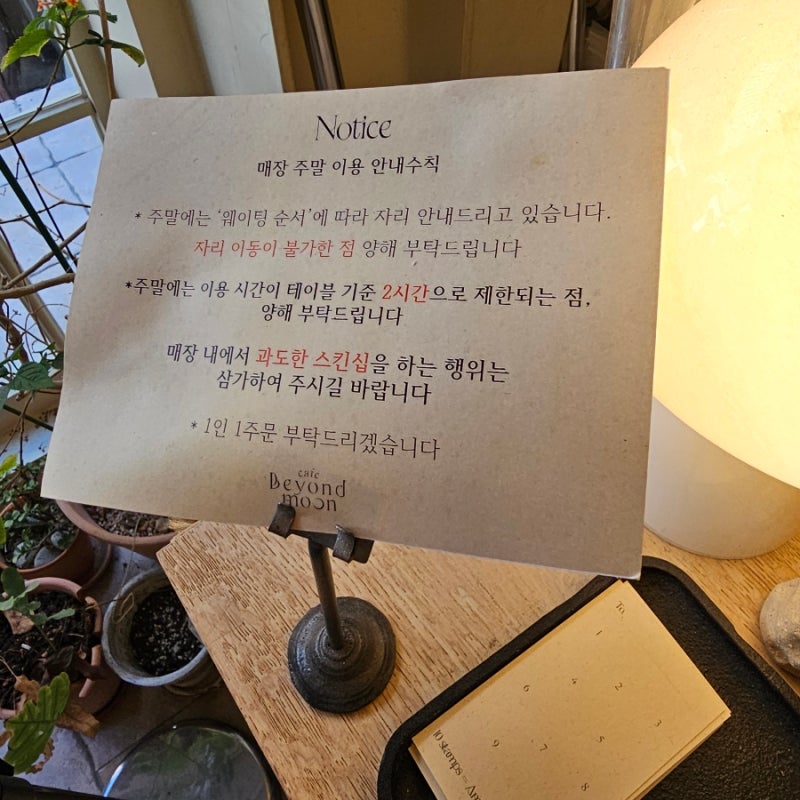 Notice
매장 주말 이용 안내수칙
* 주말에는 '웨이팅 순서'에 따라 자리 안내드리고 있습니다.
자리 이동이 불가한 점 양해 부탁드립니다
*주말에는 이용 시간이 테이블 기준 2시간으로 제한되는 점,
양해 부탁드립니다
매장 내에서 과도한 스킨십을 하는 행위는
삼가하여 주시길 바랍니다
* 1인 1주문 부탁드리겠습니다
cafe
Beyond
moon
To.
1
2
3
4
5
6
7
8
9
10 stamps =